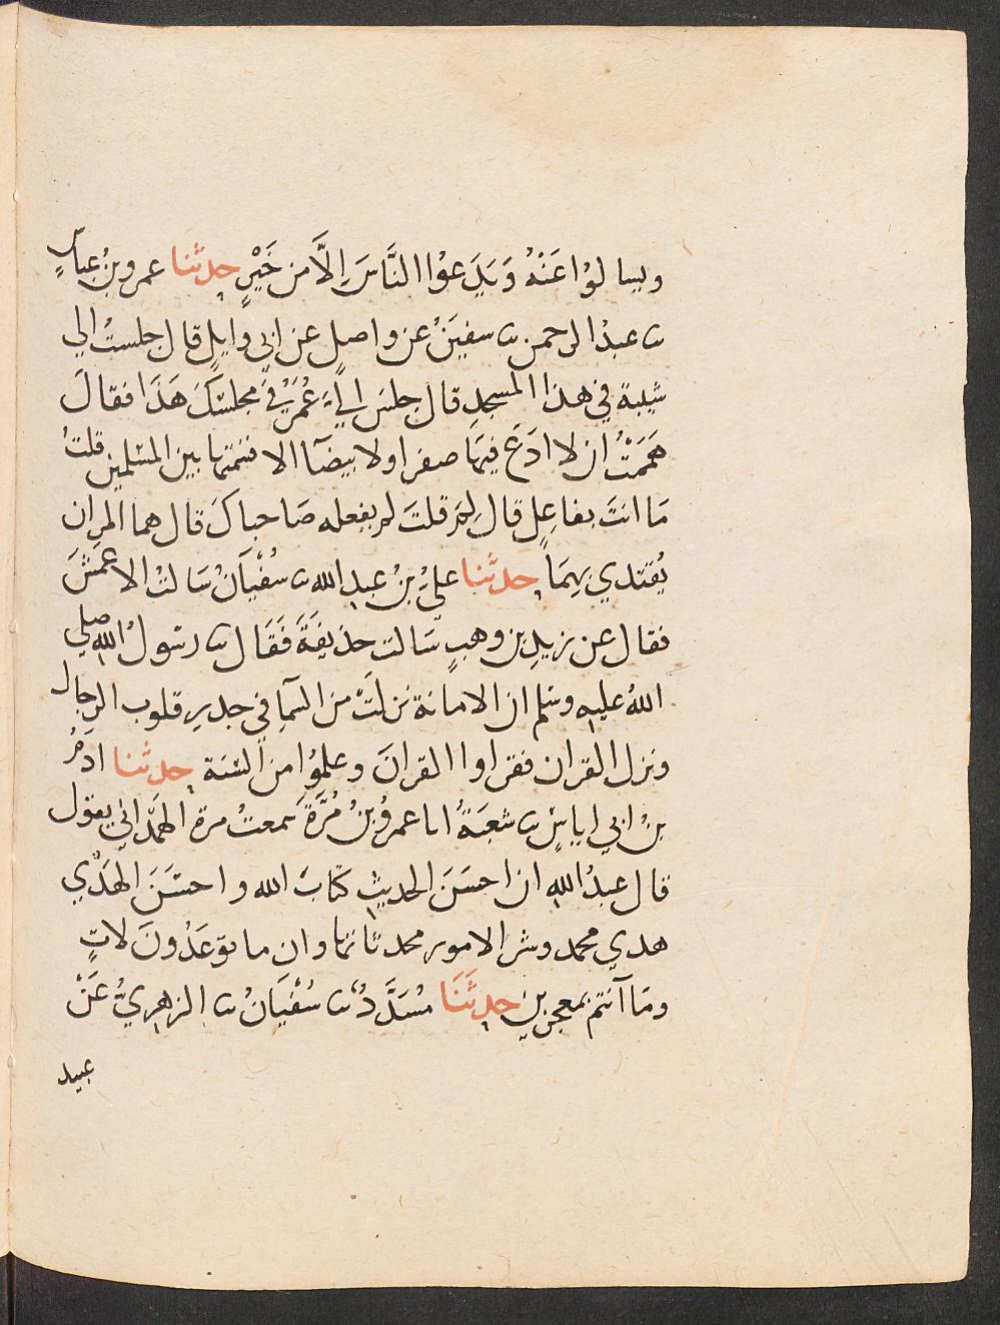 ويسالوا عَنْهُ وَيَدَعوُا النَّاسَ اِلَّا من خَيْرٍ حدثنا عمرو بنُ عباسٍ
ثنا عبدُ الرحمن ثنا سفينُ عن واصلٍ عن ابي وايلٍ قال جلستُ الي
شيبة في هذا المسجدِ قال جلسَ اليَّ عُمَرُ في مجلسكَ هَذَا فقالَ
هَمَمْتُ ان لا ادَعَ فيهَا صفرا ولا بيضآ الا قسمتها بين المسْلمين قلتُ
مَا انتَ بفاعِلٍ قال لِمَ قلتَ لم يفعله صَاحباكَ قال هما المران
يُقتدي بهِمَا حدثنا عليُّ بْنُ عبدِ الله ثنا سُفْيَانُ سَالتُ الاعْمَشَ
فقال عن زيدِ بن وهبٍ سَالت حذيفَةَ فَقَال ثنا رسولُ الله صلي
اللهُ عليه وسلم ان الامانة نزلَتْ من السمآ في جدرِ قلوب الرجال
ونزل القران فقراوا القرانَ وعلموُا من السُنة حدثنا ادمُ
بنُ ابي اياسٍ ثنا شعبَةُ انا عمرُو بنُ مُرَّةَ سَمعتُ مرة الهمْدَاني يقول
قال عبدُ اللهِ ان احسَنَ الحديثِ كتابَ الله واحسَنَ الهَدْيِ
هدي محمد وشر الامور محدثاتها وان ما توعَدُونَ لاتٍ
ومَا آنتم بمعجزين حدثَنَا مُسَدَّدُ ثنا سُفْيَانُ ثنا الزهريُّ عَنْ
عبيد